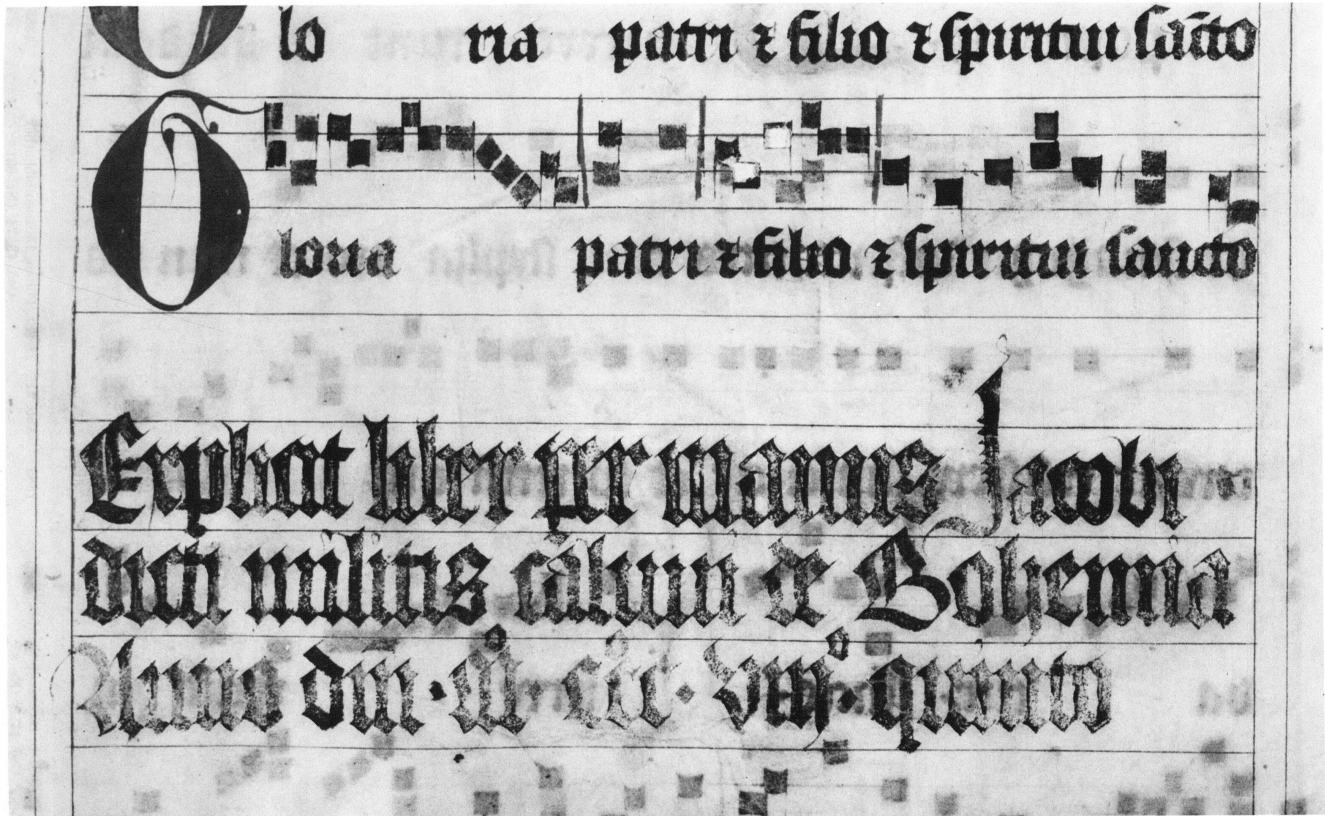 Glo ria patri ⁊ filio ⁊ spiritui sancto
Gloria patri ⁊ filio ⁊ spiritui sancto
Explicit liber per manus Jacobi
dicti militis de Bohemia
Anno dm̄ · · quinto